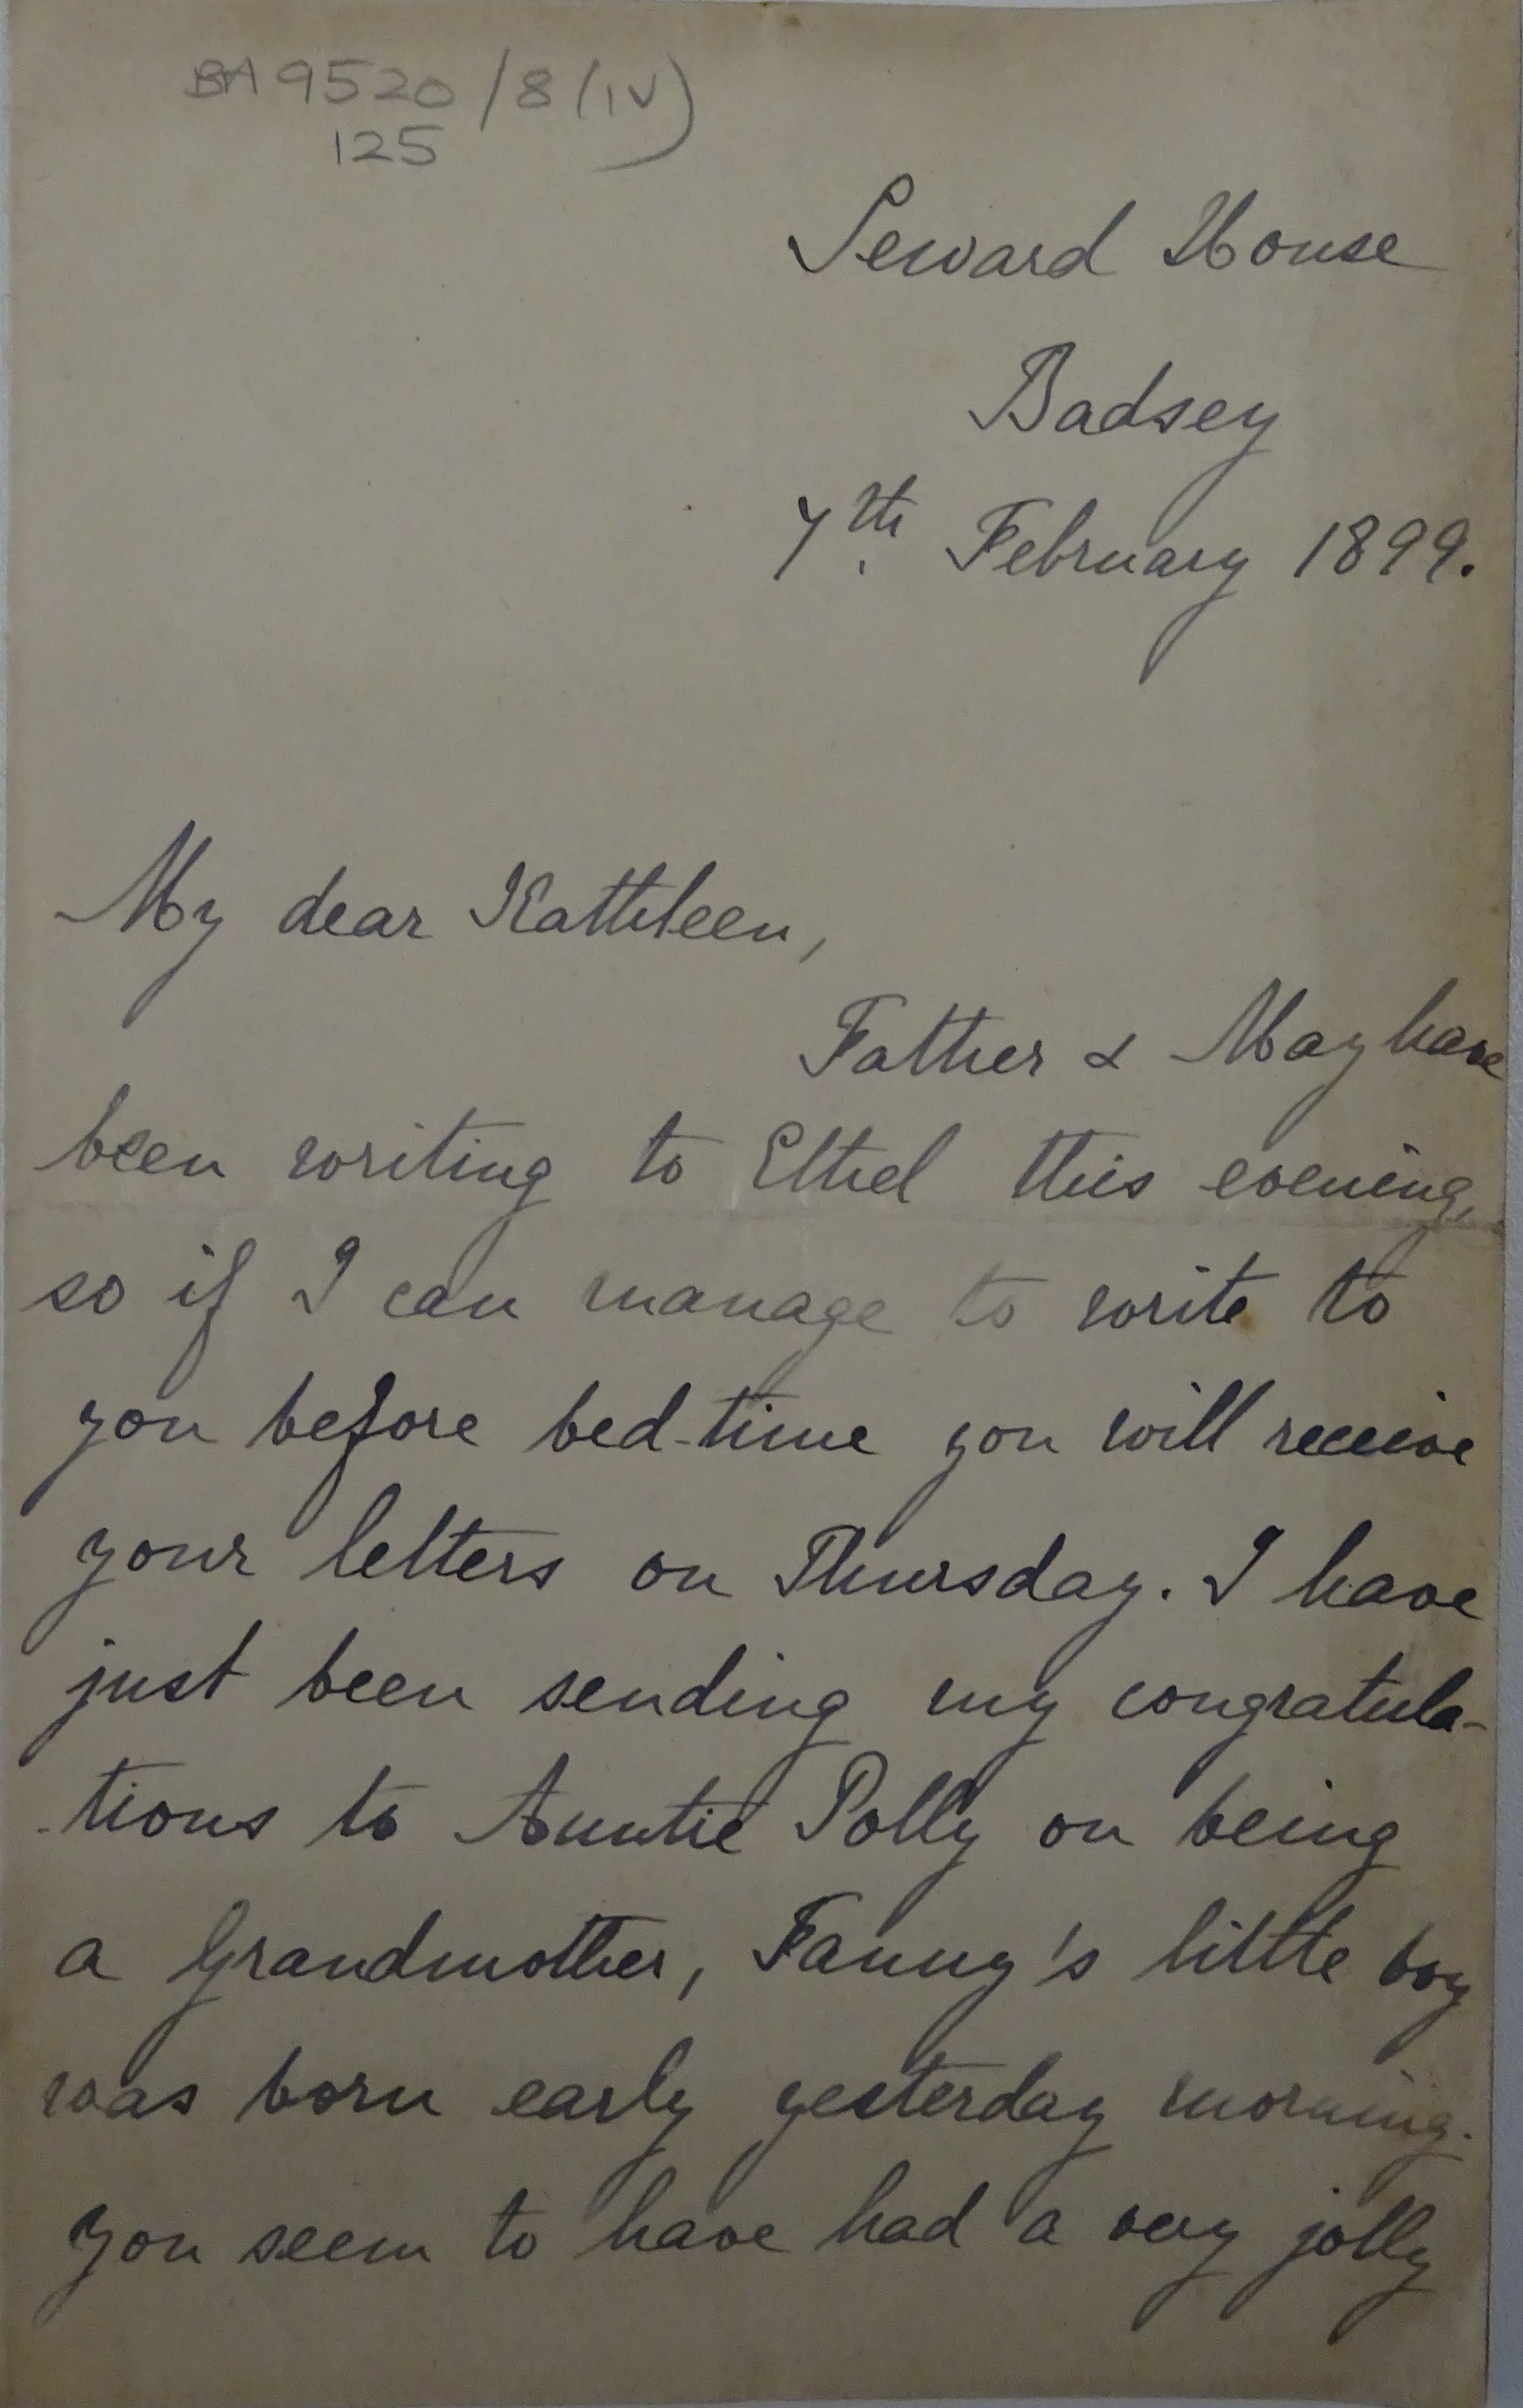 BA 9520/8(iv)
125
Seward House
Badsey
7th. February 1899.
My dear Kathleen,
Father & May have
been writing to Ethel this evening,
so if I can manage to write to
you before bed-time you will receive
your letters on Thursday. I have
just been sending my congratula-
-tions to Auntie Polly on being
a Grandmother, Fanny's little boy
was born early yesterday morning.
You seem to have had a very jolly